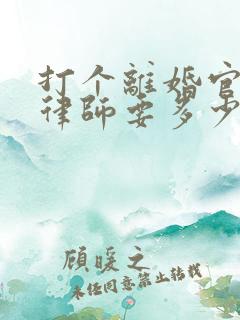 打个離婚官
律師要多少
顾暖之
未经同意禁止转载